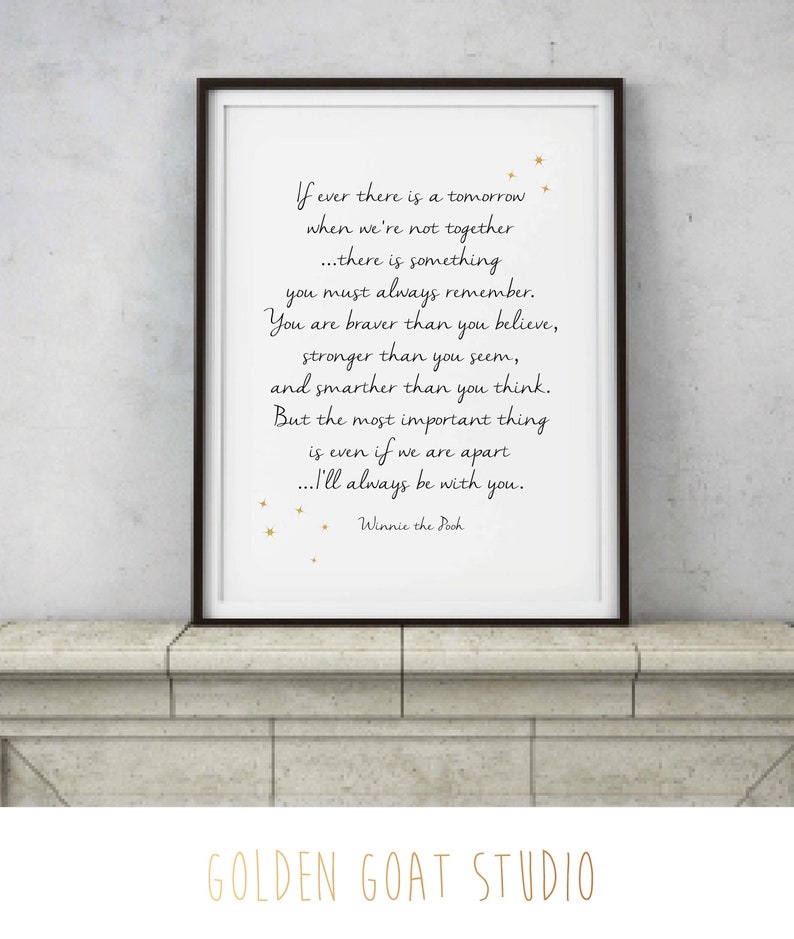 If ever there is a tomorrow
when we're not together
...there is something
you must always remember.
You are braver than you believe,
stronger than you seem,
and smarther than you think.
But the most important thing
is even if we are apart
...I'll always be with you.
Winnie the Pooh
GOLDEN GOAT STUDIO